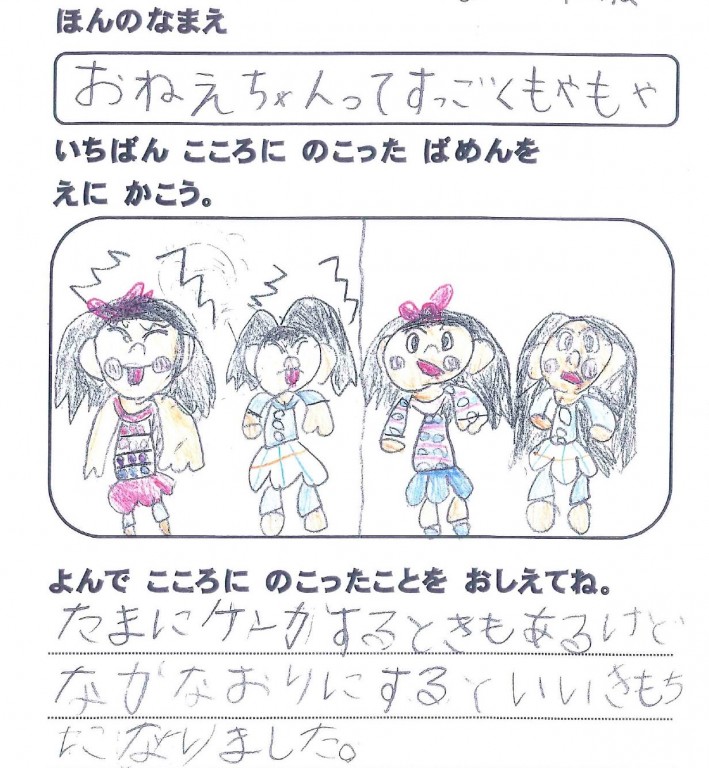 ほんのなまえ
おねえちゃんってすっごくもやもや
いちばん こころに のこった ばめんを
えに かこう。
よんで こころに のこったことを おしえてね。
たまにケンカするときもあるけど
なかなおりにするといいきもち
になりました。